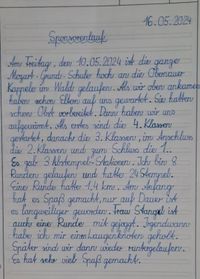 16.05.2024
Sponsorenlauf
Am Freitag, den 10.05.2024 ist die ganze
Mozart-Grund-Schule hoch an die Obernauer
Kapelle im Wald gelaufen. Als wir oben ankamen
haben schon Eltern auf uns gewartet. Sie hatten
schon Obst vorbereitet. Dann haben wir uns
aufgewärmt. Als erstes sind die 4. Klassen
gestartet, danach die 3. Klassen, im Anschluss
die 2. Klassen und zum Schluss die 1..
Es gab 3 Stempel-Stationen. Ich bin 8
Runden gelaufen und hatte 24 Stempel.
Eine Runde hatte 1,4 km. Am Anfang
hat es Spaß gemacht, nur auf Dauer ist
es langweiliger geworden. Frau Stangel ist
auch eine Runde mit gejoggt. Irgendwann
habe ich mir eine Laugenknoten geholt.
Später sind wir dann wieder runtergelaufen.
Es hat sehr viel Spaß gemacht.